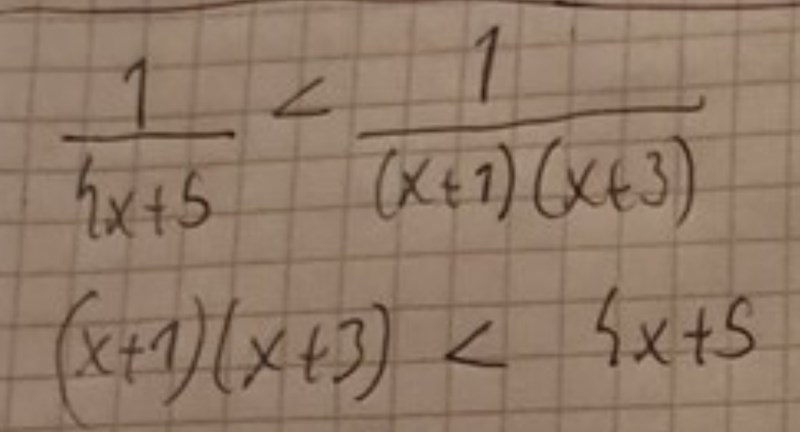 1/(4x+5) < 1/((x+1)(x+3))
(x+1)(x+3) < 4x+5